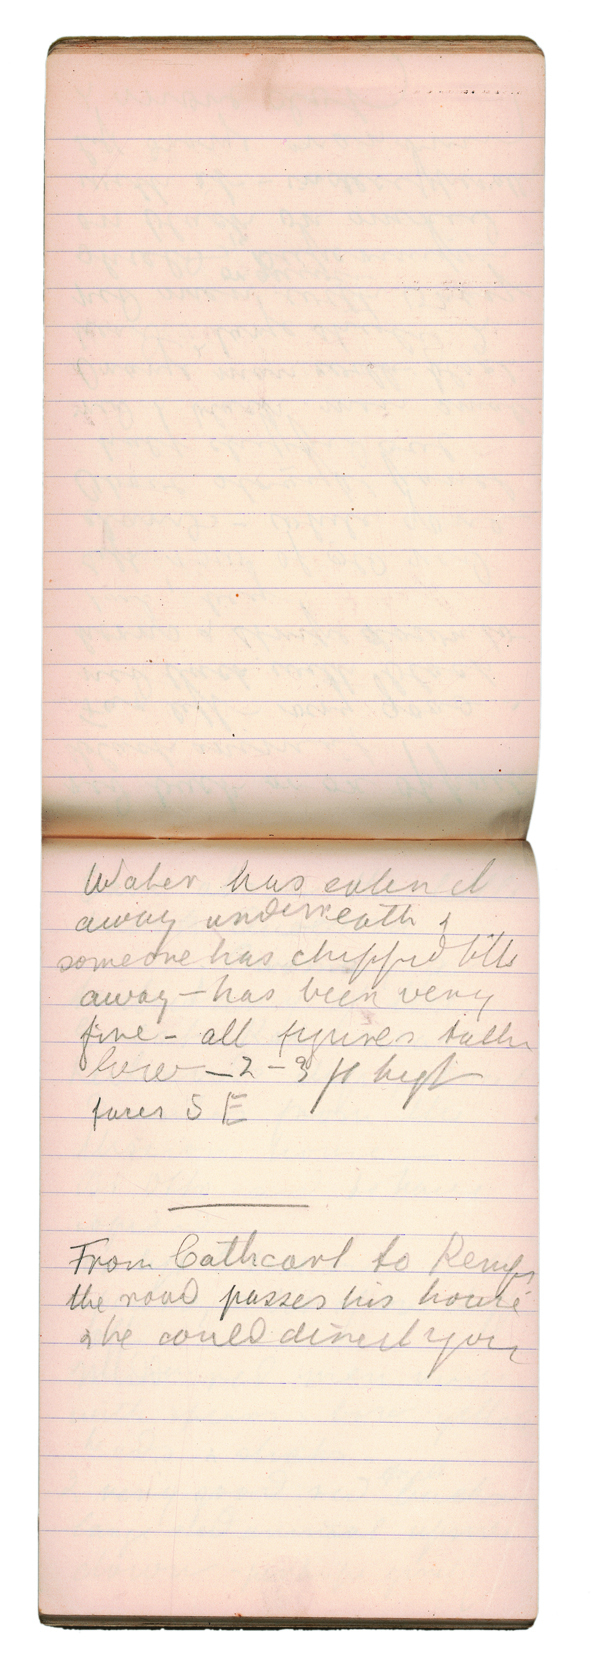 Water has eaten it
away underneath &
someone has chipped bits
away – has been very
fine – all figures rather
low – 2 – 3 ft high
faces S E
From Cathcart to Kemps
the road passes his house
& he could direct you